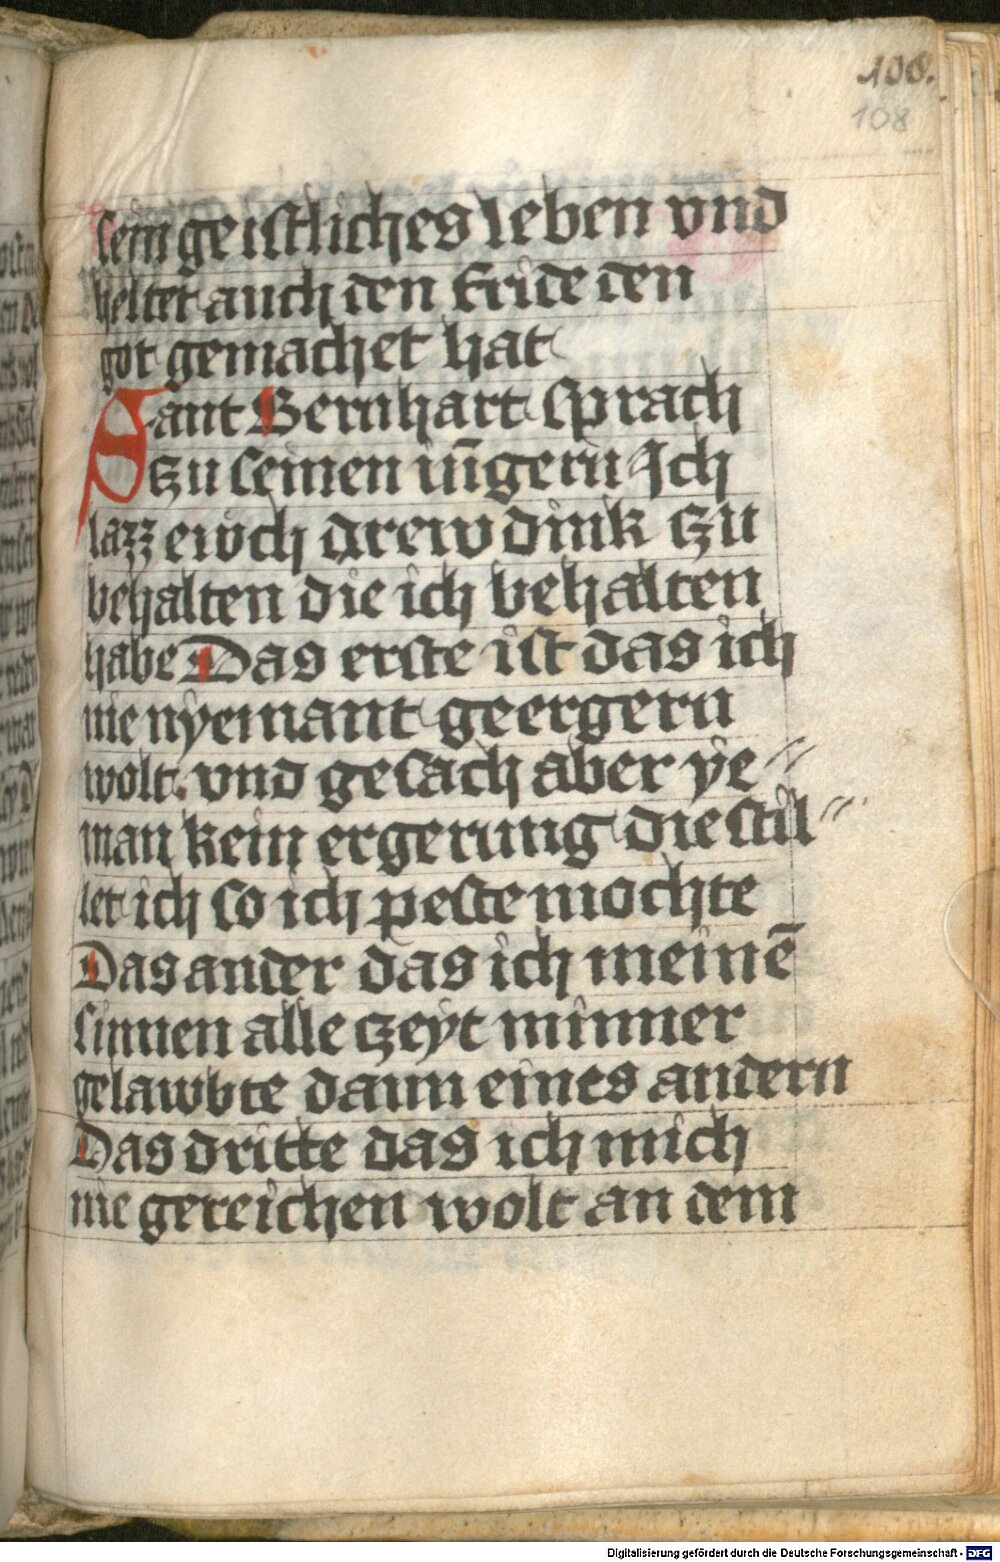 108.
108
sein geistliches leben vnd
heltet auch den fride den
got gemachet hat
Sant Bernhart sprach
tzu seinen iūgern Ich
lazz ewch drew dink tzu
behalten die ich behalten
habe Das erste ist das ich
nie nyemant geergern
wolt. vnd gesach aber ye〃
man kein ergerung die stil〃
let ich so ich peste mochte
Das ander das ich meinē
sinnen alle tzeyt minner
gelawbte dann eines andern
Das dritte das ich mich
nie gereichen wolt an dem
Digitalisierung gefördert durch die Deutsche Forschungsgemeinschaft - DFG